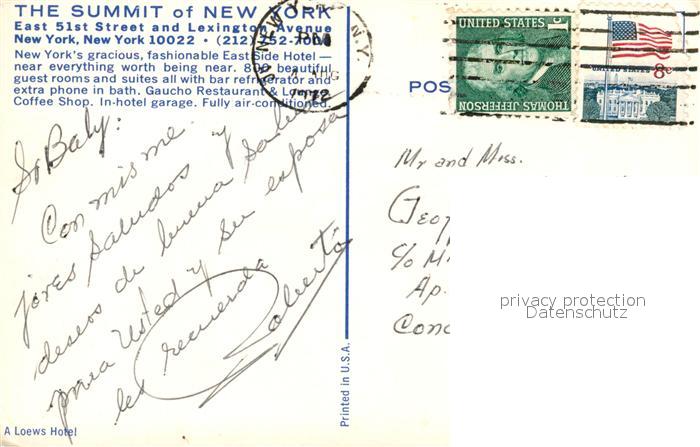 THE SUMMIT of NEW YORK
East 51st Street and Lexington Avenue
New York, New York 10022 • (212) 752-7000
New York's gracious, fashionable East Side Hotel —
near everything worth being near. 800 beautiful
guest rooms and suites all with bar refrigerator and
extra phone in bath. Gaucho Restaurant & Lounge
Coffee Shop. In-hotel garage. Fully air-conditioned.
NEW YORK, N.Y.
PM
AUG
1972
UNITED STATES
1c
THOMAS JEFFERSON
UNITED STATES
8c
POS
Sr Baly:
Con mis me
jores Saludos y
deseos de buena salud
para Usted y su esposa
les recuerda
Roberto
Mr and Miss.
Geor
c/o M
Ap.
Conc
privacy protection
Datenschutz
Printed in U.S.A.
A Loews Hotel